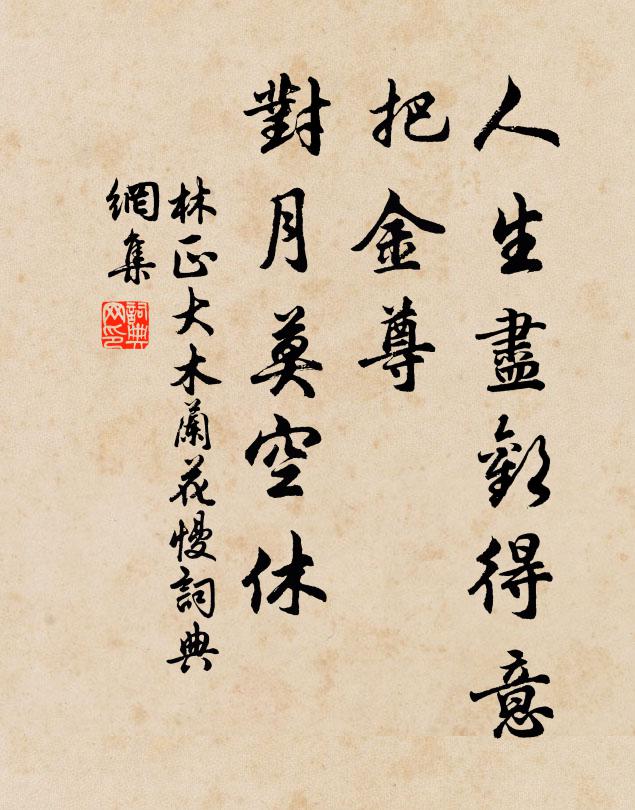 人生盡歡得意
把金尊
對月莫空休
林正大木蘭花慢詞典
網集
詞典
网印